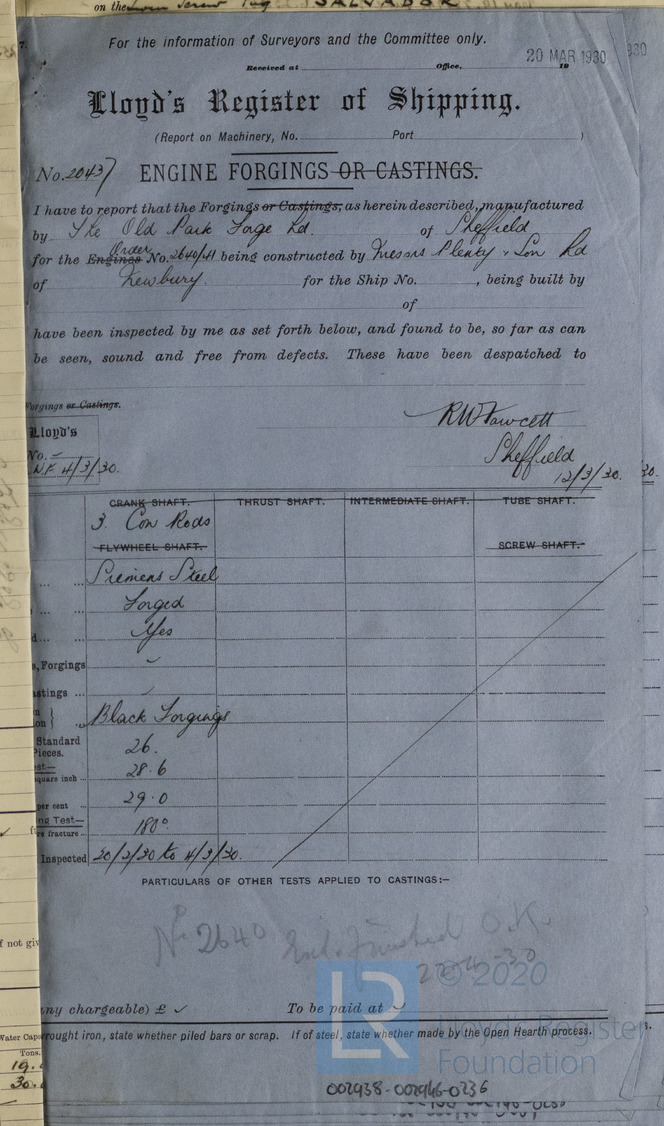 on the Twin Screw Tug SALVADOR
For the information of Surveyors and the Committee only.
20 MAR 1930
Received at Office, 19
Lloyd's Register of Shipping.
(Report on Machinery, No. Port )
No. 20437 ENGINE FORGINGS OR CASTINGS.
I have to report that the Forgings or Castings, as herein described, manufactured
by The Old Park Forge Ld. of Sheffield
Order
for the Engines No. 2640/41 being constructed by Messrs Plenty & Son Ld
of Newbury. for the Ship No. , being built by
of
have been inspected by me as set forth below, and found to be, so far as can
be seen, sound and free from defects. These have been despatched to
Forgings or Castings.
Lloyd's
No. -
4/3/30.
RW Fawcett
Sheffield
12/3/30.
CRANK SHAFT. THRUST SHAFT. INTERMEDIATE SHAFT. TUBE SHAFT.
3. Con Rods
FLYWHEEL SHAFT. SCREW SHAFT.
Siemens Steel
Forged
Yes
, Forgings
astings ...
Black Forgings
Standard
Pieces. 26.
square inch .. 28.6
per cent 29.0
ng Test— 180°
fracture
Inspected 20/2/30 to 4/3/30.
PARTICULARS OF OTHER TESTS APPLIED TO CASTINGS:—
No 2640 Finished O.K.
22-4-30
ny chargeable) £ To be paid at
rought iron, state whether piled bars or scrap. If of steel, state whether made by the Open Hearth process.
f not giv
Water Capa
Tons.
19.
30.
LR © 2020
Lloyd's Register
Foundation
002938-002946-0236